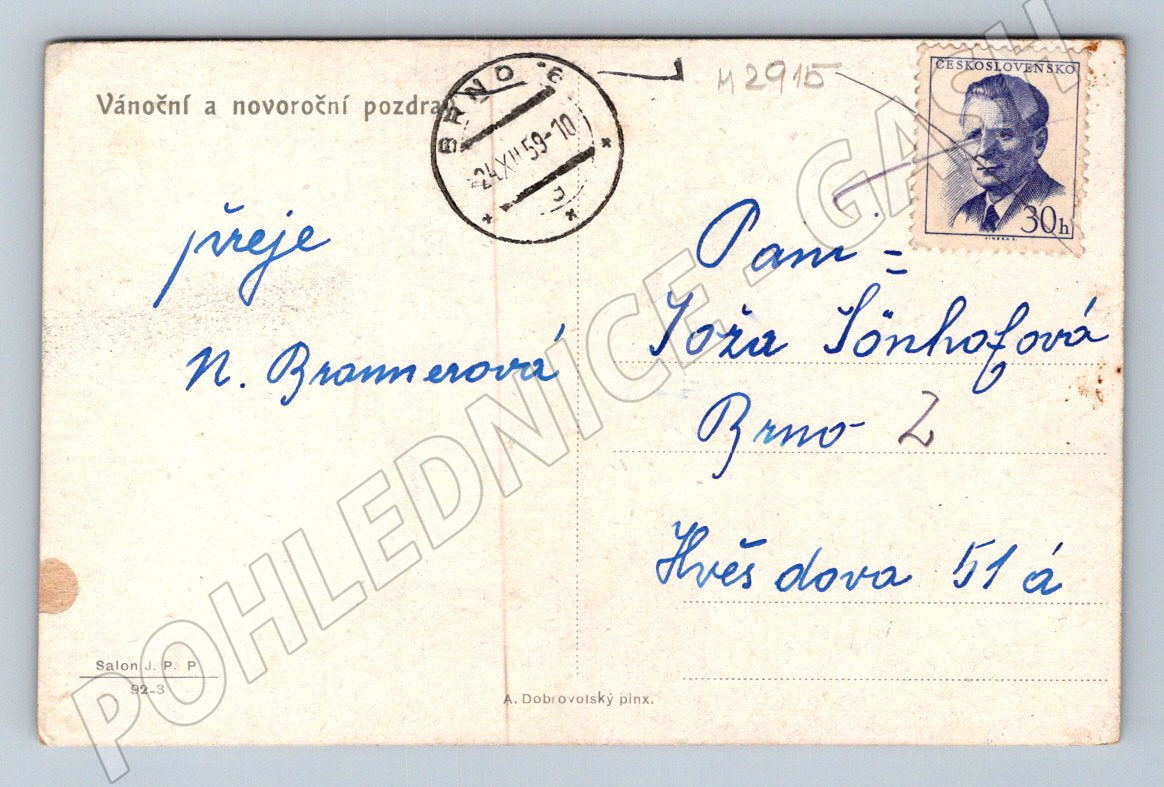 Vánoční a novoroční pozdrav
přeje
N. Brannerová
Salon J. P. P
92-3
A. Dobrovolský pinx.
BRNO 6
24.XII.59-10
M 2915
ČESKOSLOVENSKO
30h
Paní =
Joža Sönhofová
Brno 2
Hvěsdova 51 á
POHLEDNICE - GASH